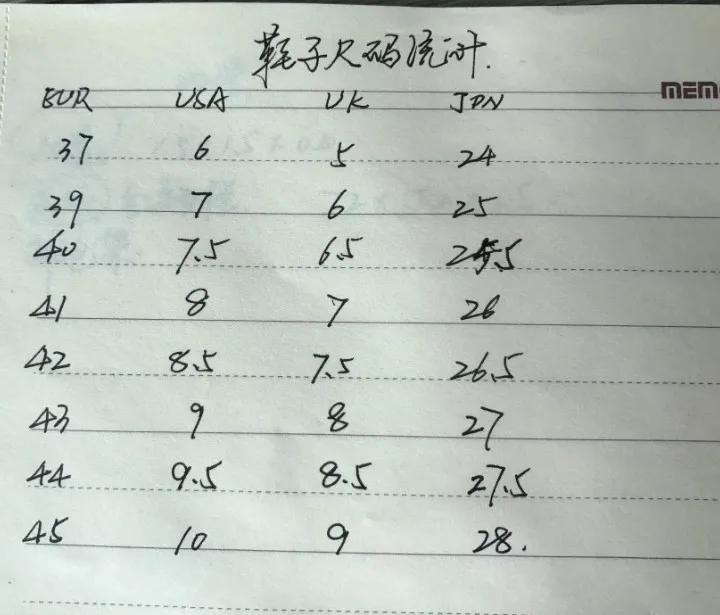 鞋子尺码统计.
EUR USA UK JPN
37 6 5 24
39 7 6 25
40 7.5 6.5 25.5
41 8 7 26
42 8.5 7.5 26.5
43 9 8 27
44 9.5 8.5 27.5
45 10 9 28.